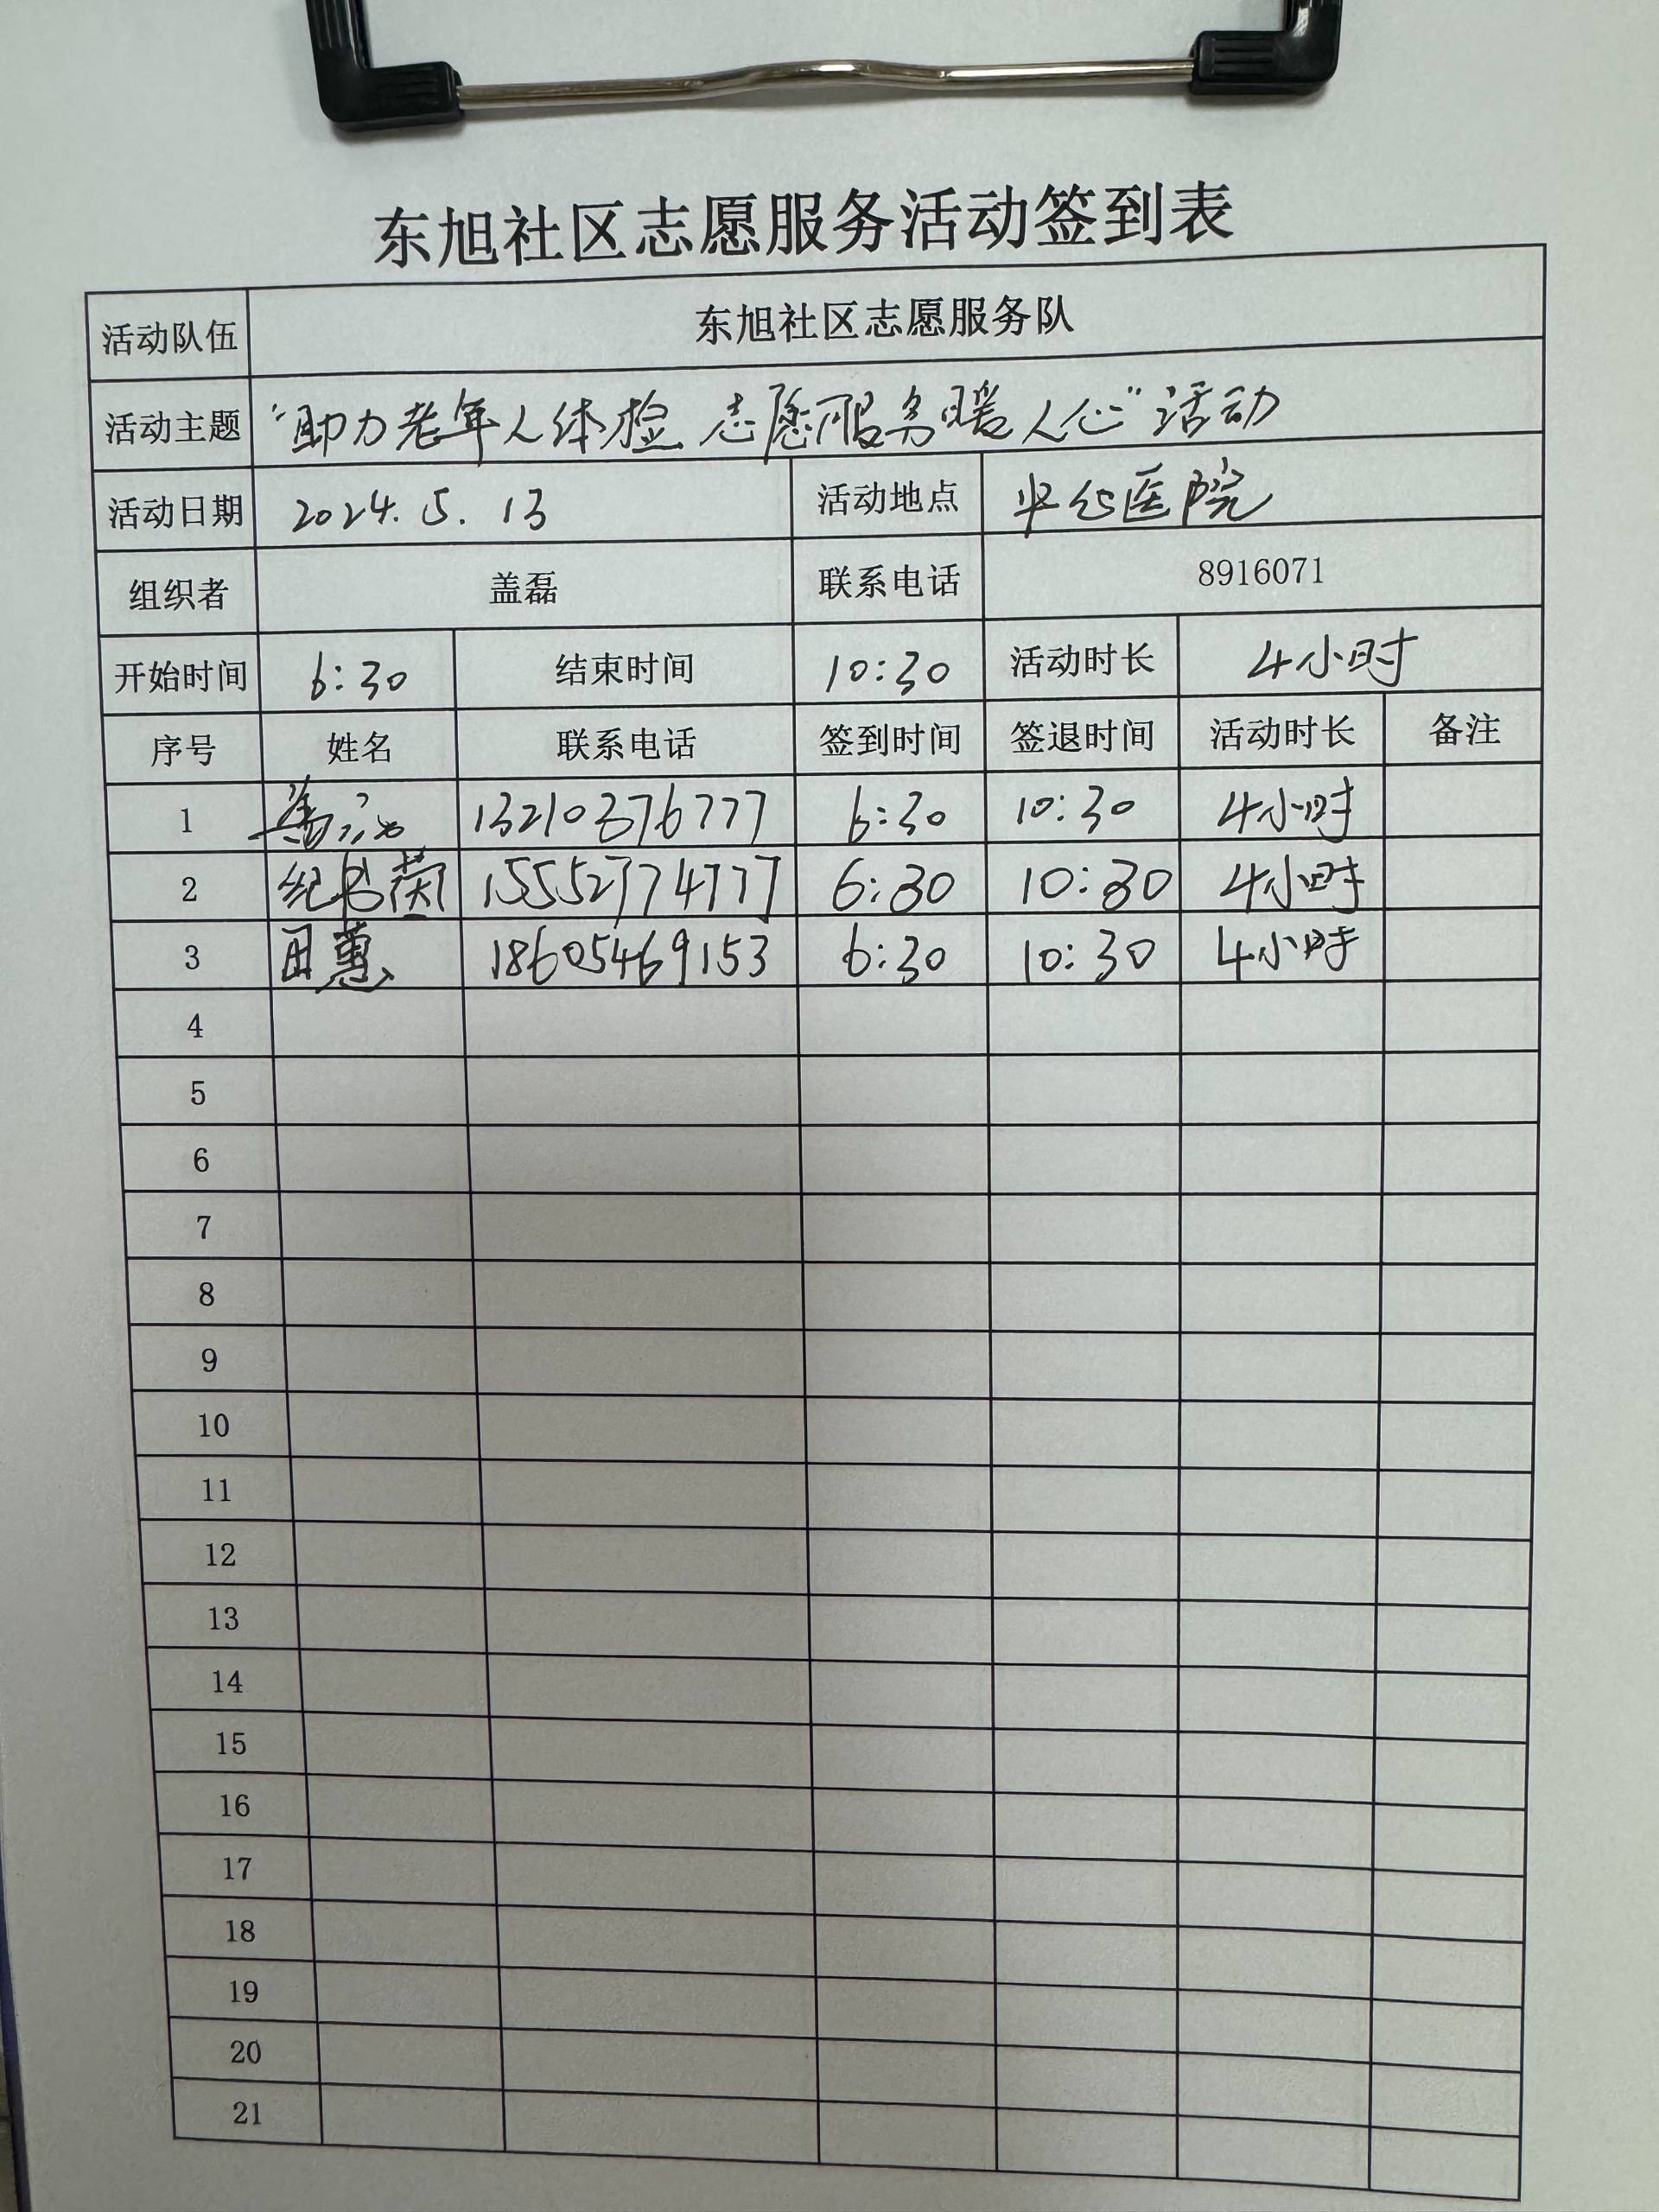 东旭社区志愿服务活动签到表
活动队伍 东旭社区志愿服务队
活动主题 "助力老年人体检 志愿服务暖人心"活动
活动日期 2024.5.13 活动地点 医院
组织者 盖磊 联系电话 8916071
开始时间 6:30 结束时间 10:30 活动时长 4小时
序号 姓名 联系电话 签到时间 签退时间 活动时长 备注
1 13210376777 6:30 10:30 4小时
2 纪书茵 15552774777 6:30 10:30 4小时
3 田蕙 18605469153 6:30 10:30 4小时
4
5
6
7
8
9
10
11
12
13
14
15
16
17
18
19
20
21